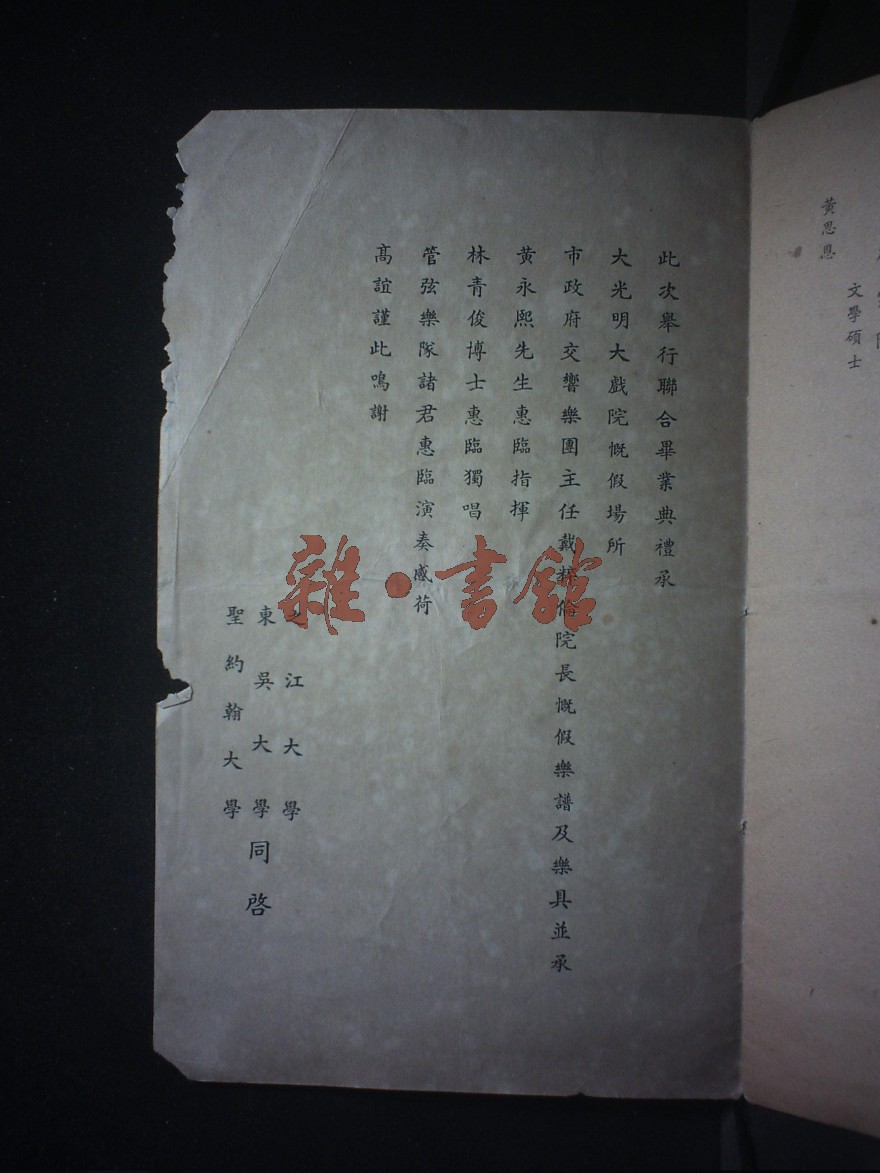 黃恩恩
文學碩士
此次舉行聯合畢業典禮承
大光明大戲院慨假場所
市政府交響樂團主任戴粹倫院長慨假樂譜及樂具並承
黃永熙先生惠臨指揮
林青俊博士惠臨獨唱
管弦樂隊諸君惠臨演奏感荷
高誼謹此鳴謝
之江大學
東吳大學同啓
聖約翰大學
雜·書館